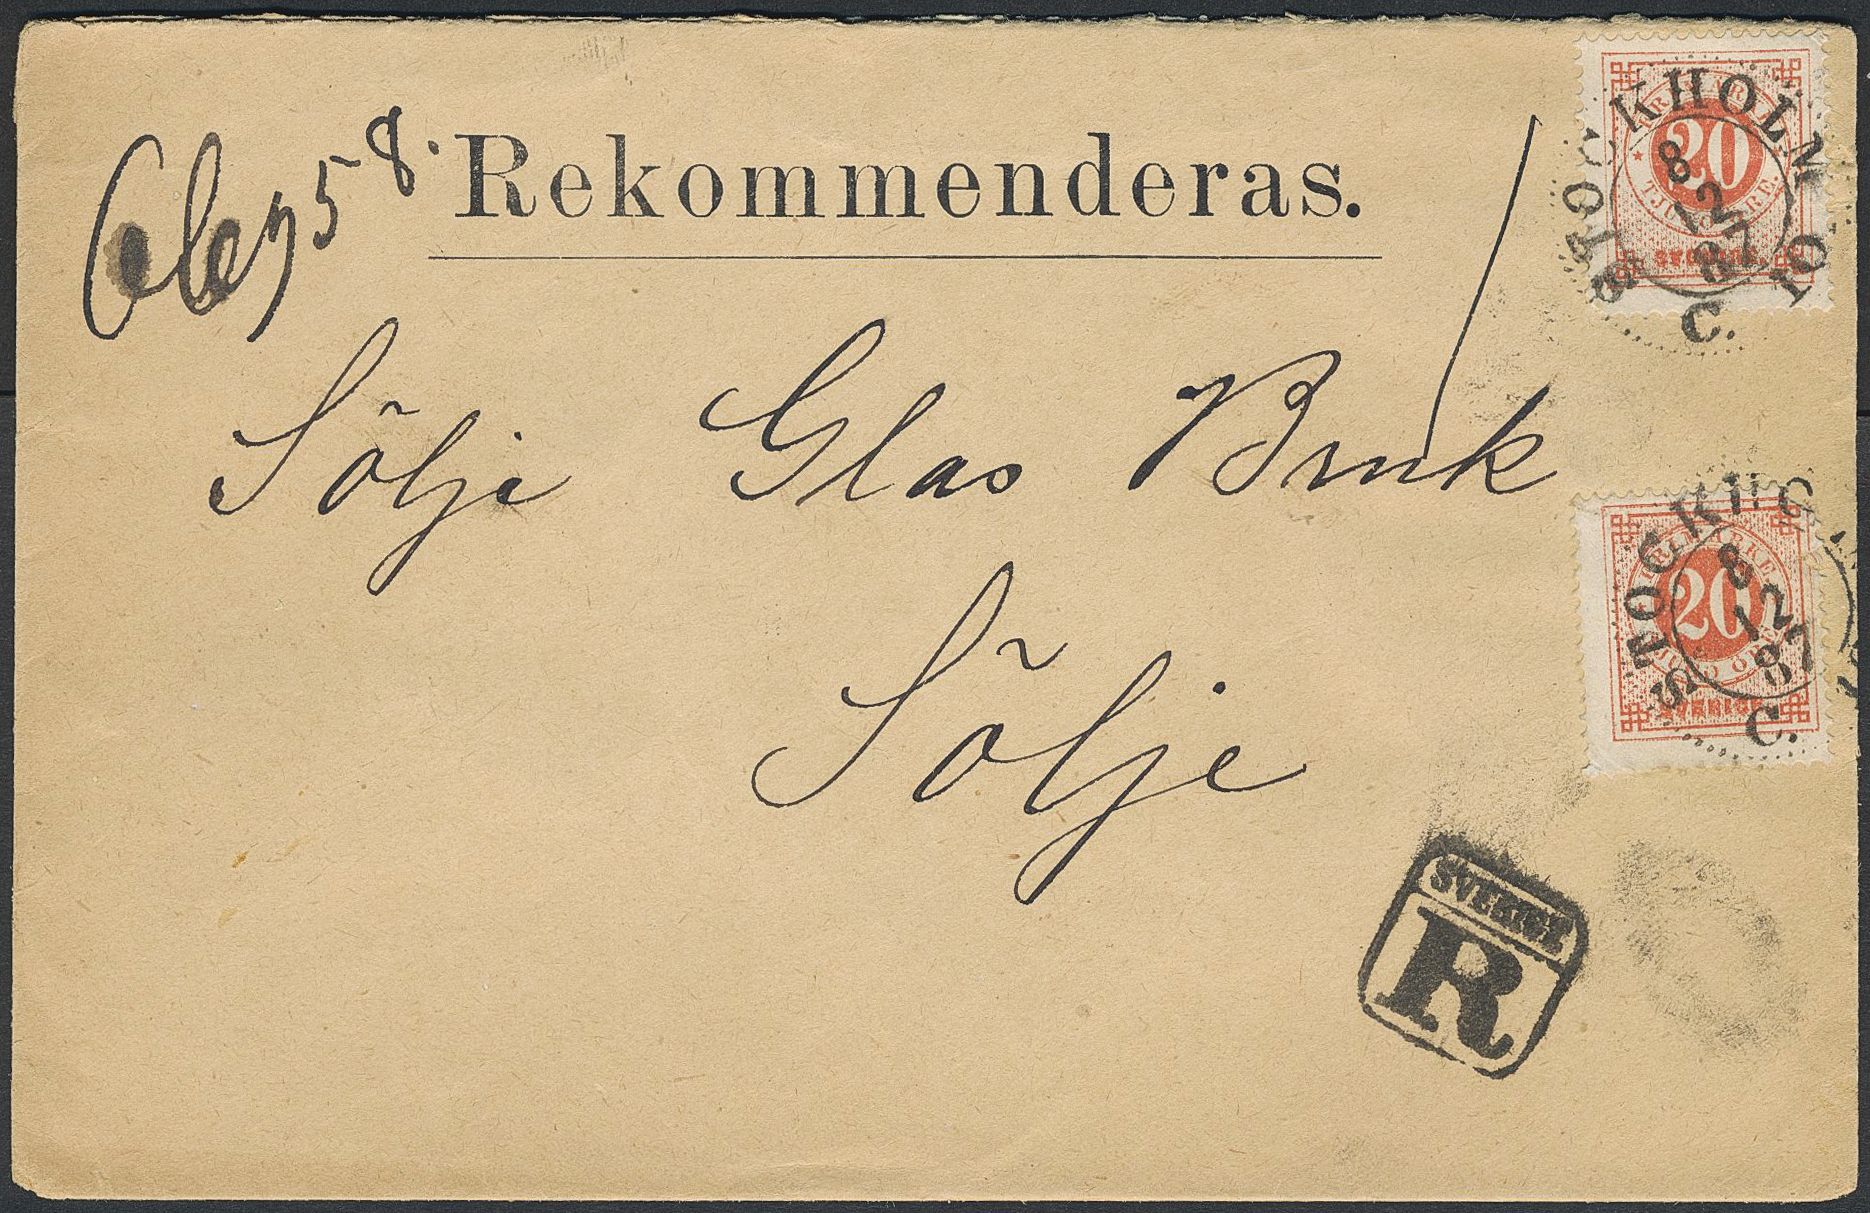 58.
Rekommenderas.
Sölje Glas Bruk
Sölje
STOCKHOLM
8
12
87
C.
TOM
FRIMÄRKE
20
TJUGO ÖRE.
SVERIGE
STOCKHO
8
12
87
C.
FRIMÄRKE
20
TJUGO ÖRE
SVERIGE
SVERIGE
R